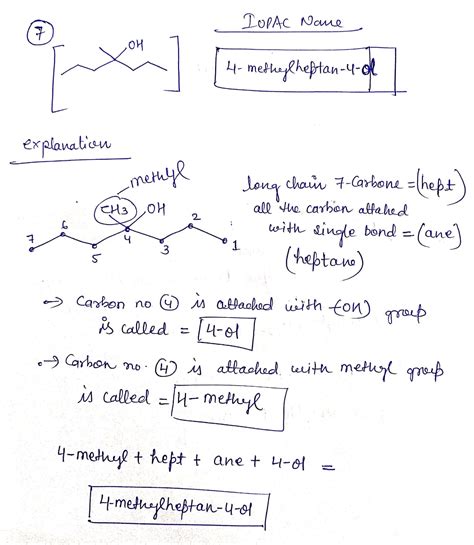 7
IUPAC Name
OH
4-methylheptan-4-ol
explanation
methyl
CH3
OH
7 6 5 4 3 2 1
long chain 7-Carbone = (hept)
all the carbon attached
with single bond = (ane)
(heptane)
→ Carbon no 4 is attached with -(OH) group
is called = 4-ol
→ Carbon no. 4 is attached with methyl group
is called = 4-methyl
4-methyl + hept + ane + 4-ol =
4-methylheptan-4-ol